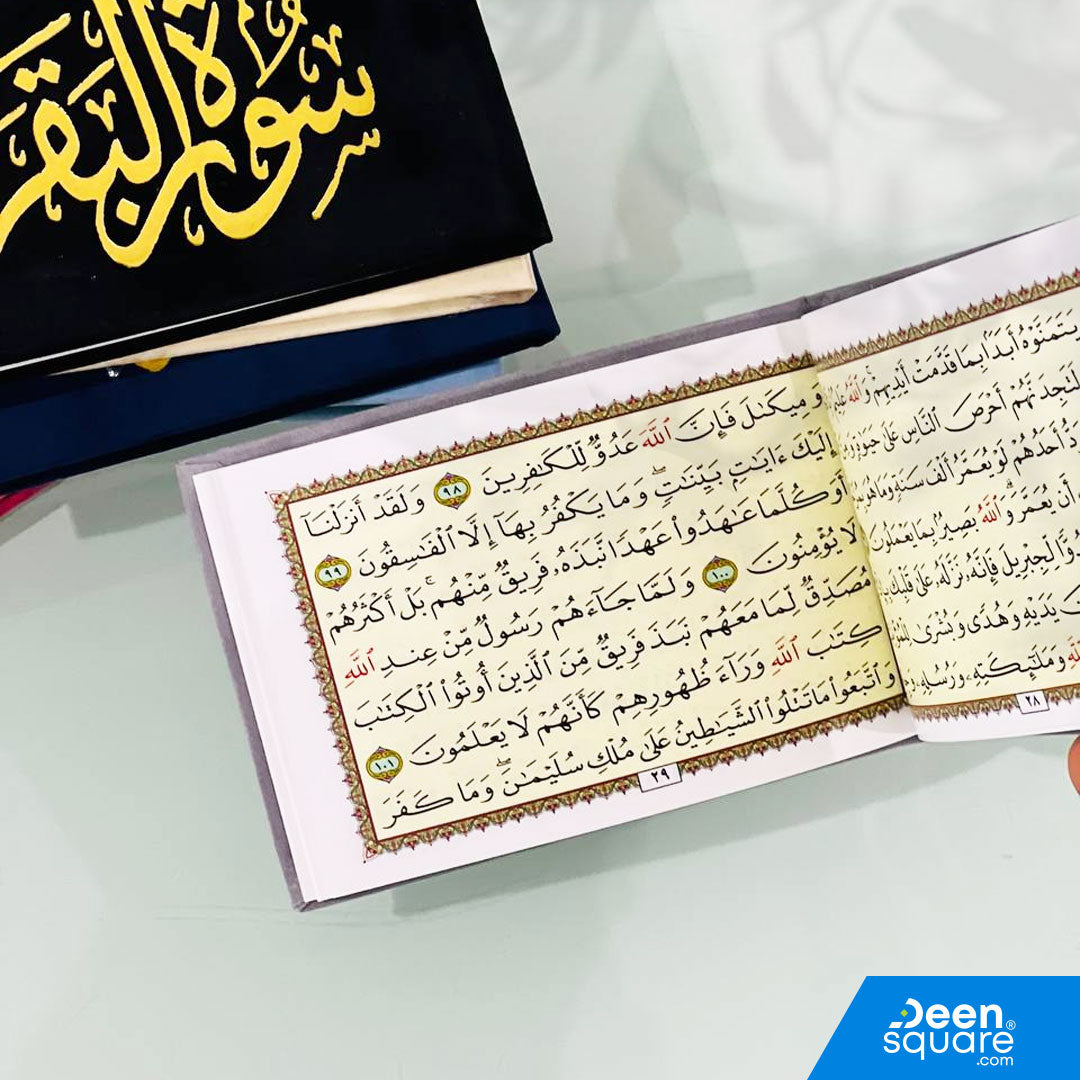 سورة البقر
يَتَمَنَّوْهُ أَبَدًۢا بِمَا قَدَّمَتْ أَيْدِيهِمْ ۗ وَٱللَّهُ عَلِيمٌۢ
لَتَجِدَنَّهُمْ أَحْرَصَ ٱلنَّاسِ عَلَىٰ حَيَوٰةٍ
أَحَدُهُمْ لَوْ يُعَمَّرُ أَلْفَ سَنَةٍ وَمَا هُوَ
أَن يُعَمَّرَ ۗ وَٱللَّهُ بَصِيرٌۢ بِمَا يَعْمَلُونَ
لِّجِبْرِيلَ فَإِنَّهُۥ نَزَّلَهُۥ عَلَىٰ قَلْبِكَ
يَدَيْهِ وَهُدًى وَبُشْرَىٰ
وَمَلَـٰٓئِكَتِهِۦ وَرُسُلِهِۦ
٢٨
وَمِيكَىٰلَ فَإِنَّ ٱللَّهَ عَدُوٌّ لِّلْكَـٰفِرِينَ ٩٨ وَلَقَدْ أَنزَلْنَآ
إِلَيْكَ ءَايَـٰتٍۭ بَيِّنَـٰتٍ ۖ وَمَا يَكْفُرُ بِهَآ إِلَّا ٱلْفَـٰسِقُونَ ٩٩
أَوَكُلَّمَا عَـٰهَدُوا۟ عَهْدًا نَّبَذَهُۥ فَرِيقٌ مِّنْهُم ۚ بَلْ أَكْثَرُهُمْ
لَا يُؤْمِنُونَ ١٠٠ وَلَمَّا جَآءَهُمْ رَسُولٌ مِّنْ عِندِ ٱللَّهِ
مُصَدِّقٌ لِّمَا مَعَهُمْ نَبَذَ فَرِيقٌ مِّنَ ٱلَّذِينَ أُوتُوا۟ ٱلْكِتَـٰبَ
كِتَـٰبَ ٱللَّهِ وَرَآءَ ظُهُورِهِمْ كَأَنَّهُمْ لَا يَعْلَمُونَ ١٠١
وَٱتَّبَعُوا۟ مَا تَتْلُوا۟ ٱلشَّيَـٰطِينُ عَلَىٰ مُلْكِ سُلَيْمَـٰنَ ۖ وَمَا كَفَرَ
٢٩
Deen
square®
.com